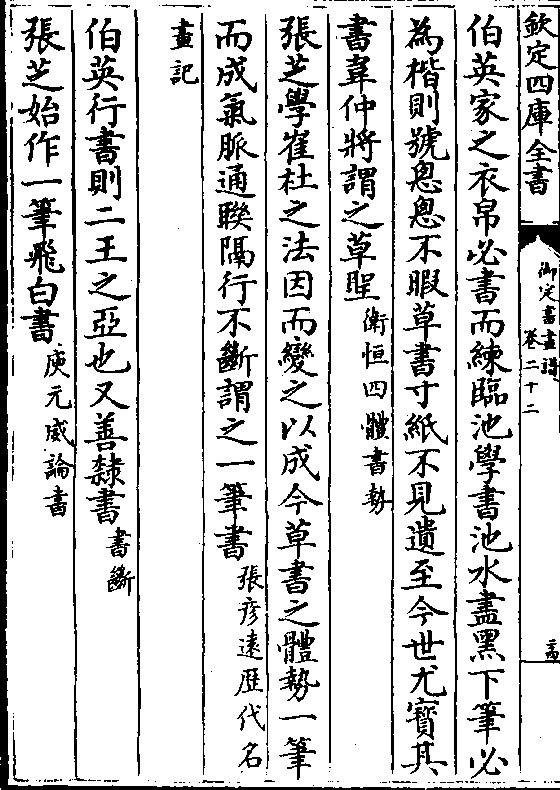 欽定四庫全書
御定書畫譜
卷二十二
伯英家之衣帛必書而練臨池學書池水盡黑下筆必
為楷則號怱怱不暇草書寸紙不見遺至今世尤寳其
書韋仲將謂之草聖衛恒四體書勢
張芝學崔杜之法因而變之以成今草書之體勢一筆
而成氣脈通聯隔行不斷謂之一筆書張彦遠歴代名
畫記
伯英行書則二王之亞也又善隸書書斷
張芝始作一筆飛白書庾元威論書